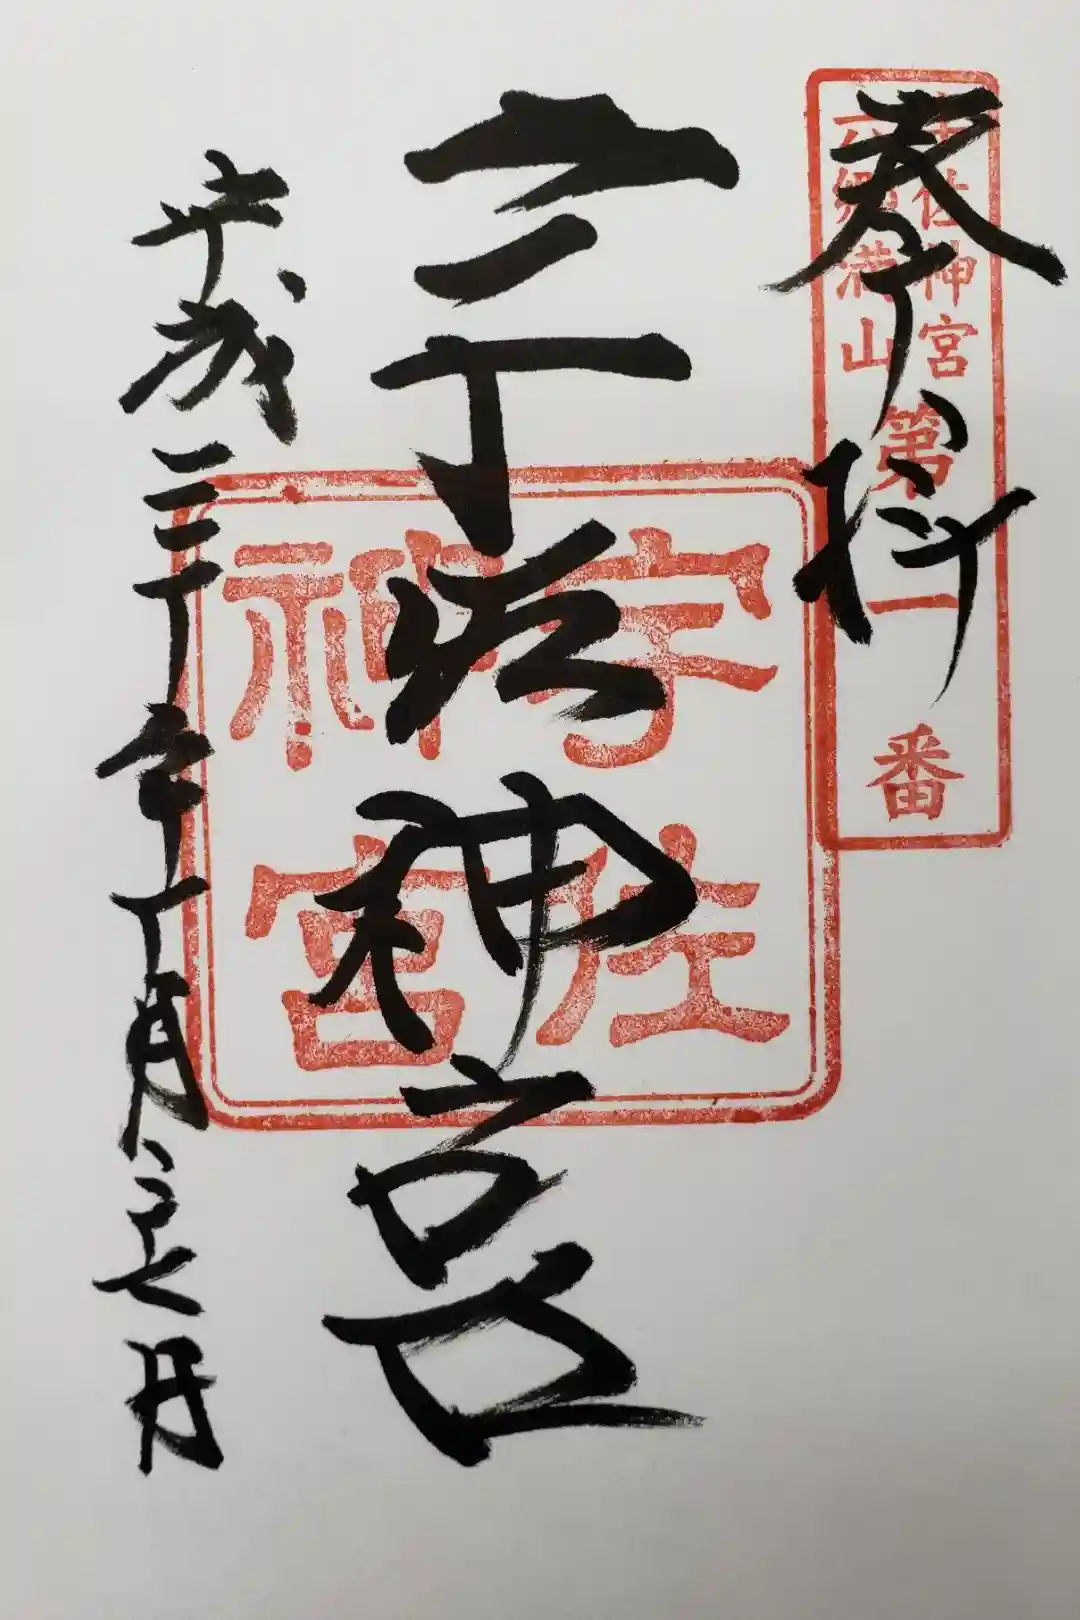 奉拝
宇佐神宮
六郷満山
第一番
宇佐神宮
宇佐
神宮
平成三十年十月七日